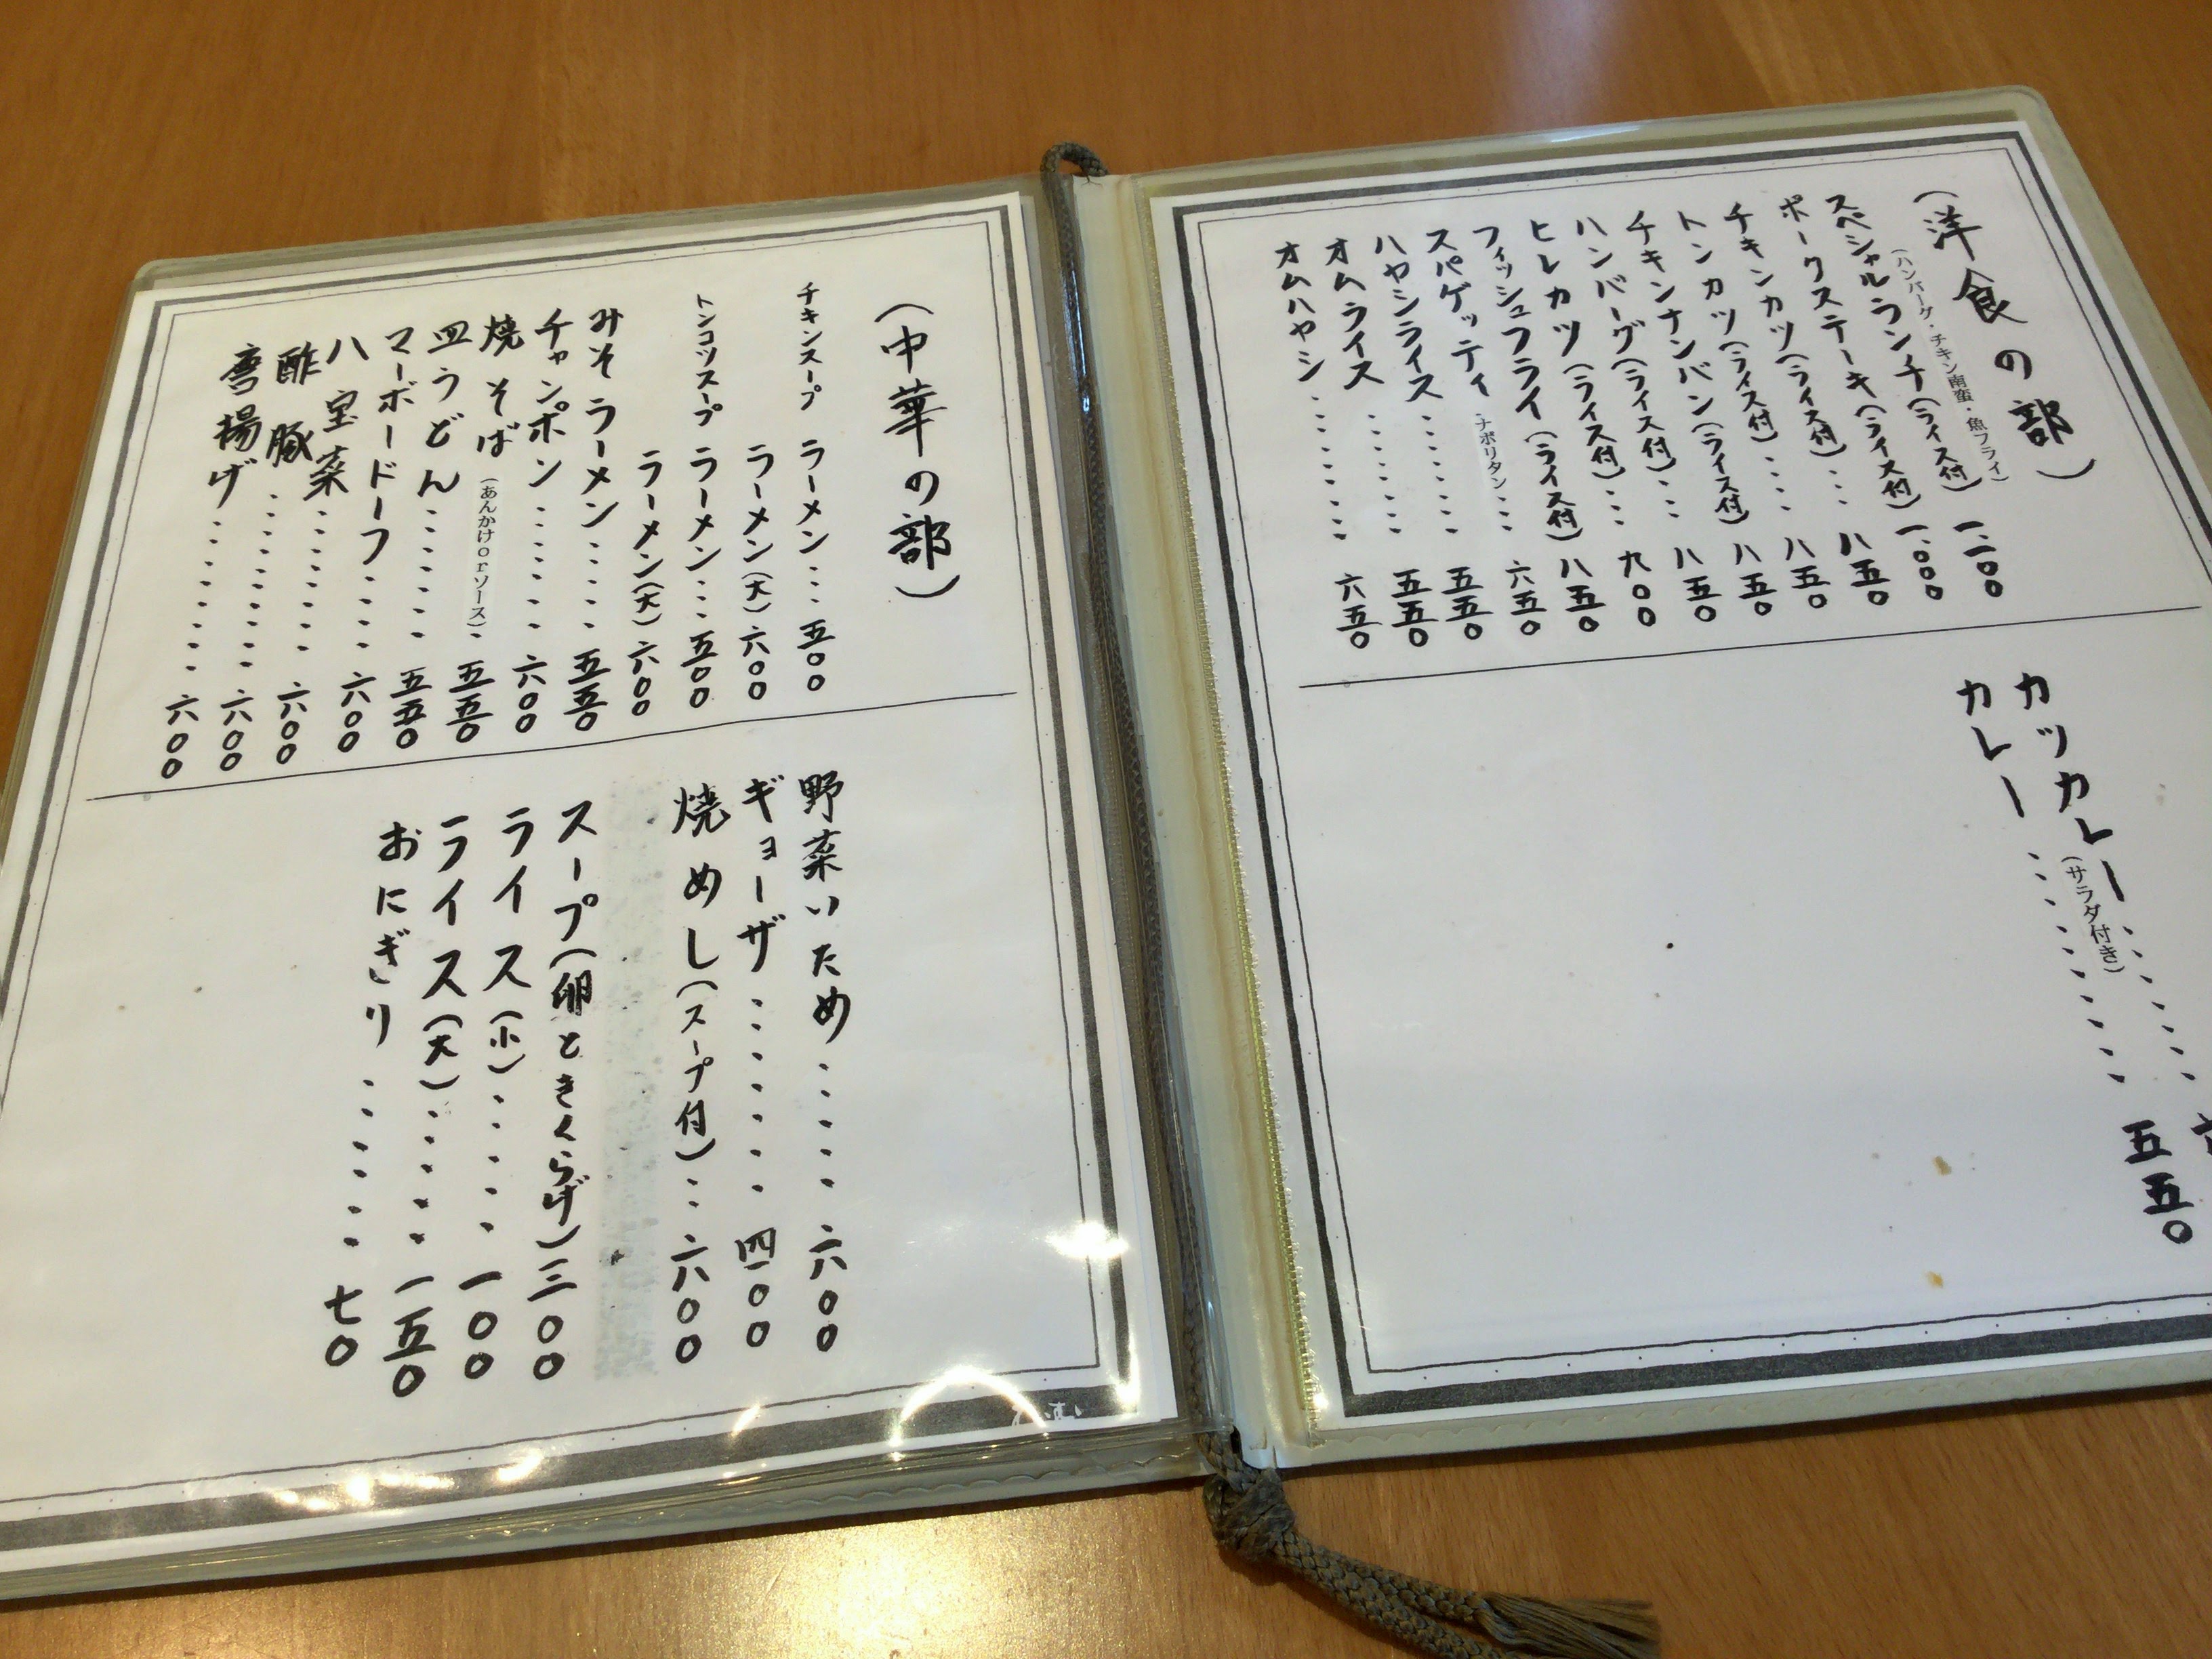 （洋食の部）
（ハンバーグ・チキン南蛮・魚フライ）
スペシャルランチ（ライス付）一、一〇〇
ポークステーキ（ライス付）一、〇〇〇
チキンカツ（ライス付）・・・八五〇
トンカツ（ライス付）・・・・八五〇
チキンナンバン（ライス付）八五〇
ハンバーグ（ライス付）・・・八五〇
ヒレカツ（ライス付）・・・九〇〇
フィッシュフライ（ライス付）八五〇
スパゲッティ・ナポリタン・・・六五〇
ハヤシライス・・・・・・・五五〇
オムライス・・・・・・・五五〇
オムハヤシ・・・・・・・・六五〇
カツカレー・・・・・・・
（サラダ付き）
カレー・・・・・・・・・・五五〇
（中華の部）
チキンスープ ラーメン・・・五〇〇
ラーメン（大）六〇〇
トンコツスープ ラーメン・・・五〇〇
ラーメン（大）六〇〇
みそラーメン・・・・・五五〇
チャンポン・・・・・・六〇〇
焼そば（あんかけorソース）・五五〇
皿うどん・・・・・・五五〇
マーボードーフ・・・・六〇〇
八宝菜・・・・・・・六〇〇
酢豚・・・・・・・・六〇〇
唐揚げ・・・・・・・・六〇〇
野菜いため・・・・・六〇〇
ギョーザ・・・・・・・四〇〇
焼めし（スープ付）・・・六〇〇
スープ（卵ときくらげ）三〇〇
ライス（小）・・・・・一〇〇
ライス（大）・・・・・一五〇
おにぎり・・・・・・七〇